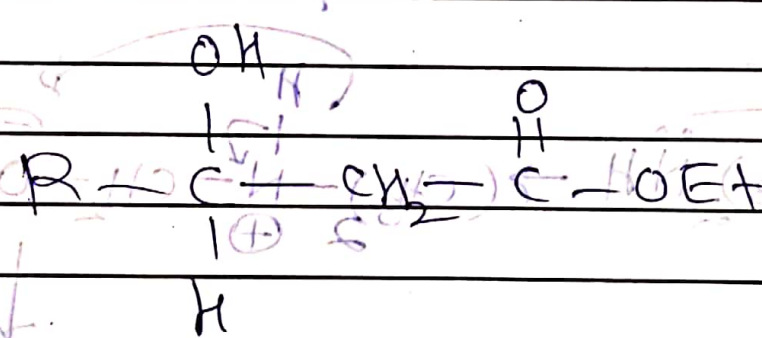 OH
O
R — C — CH₂ — C — OEt
H